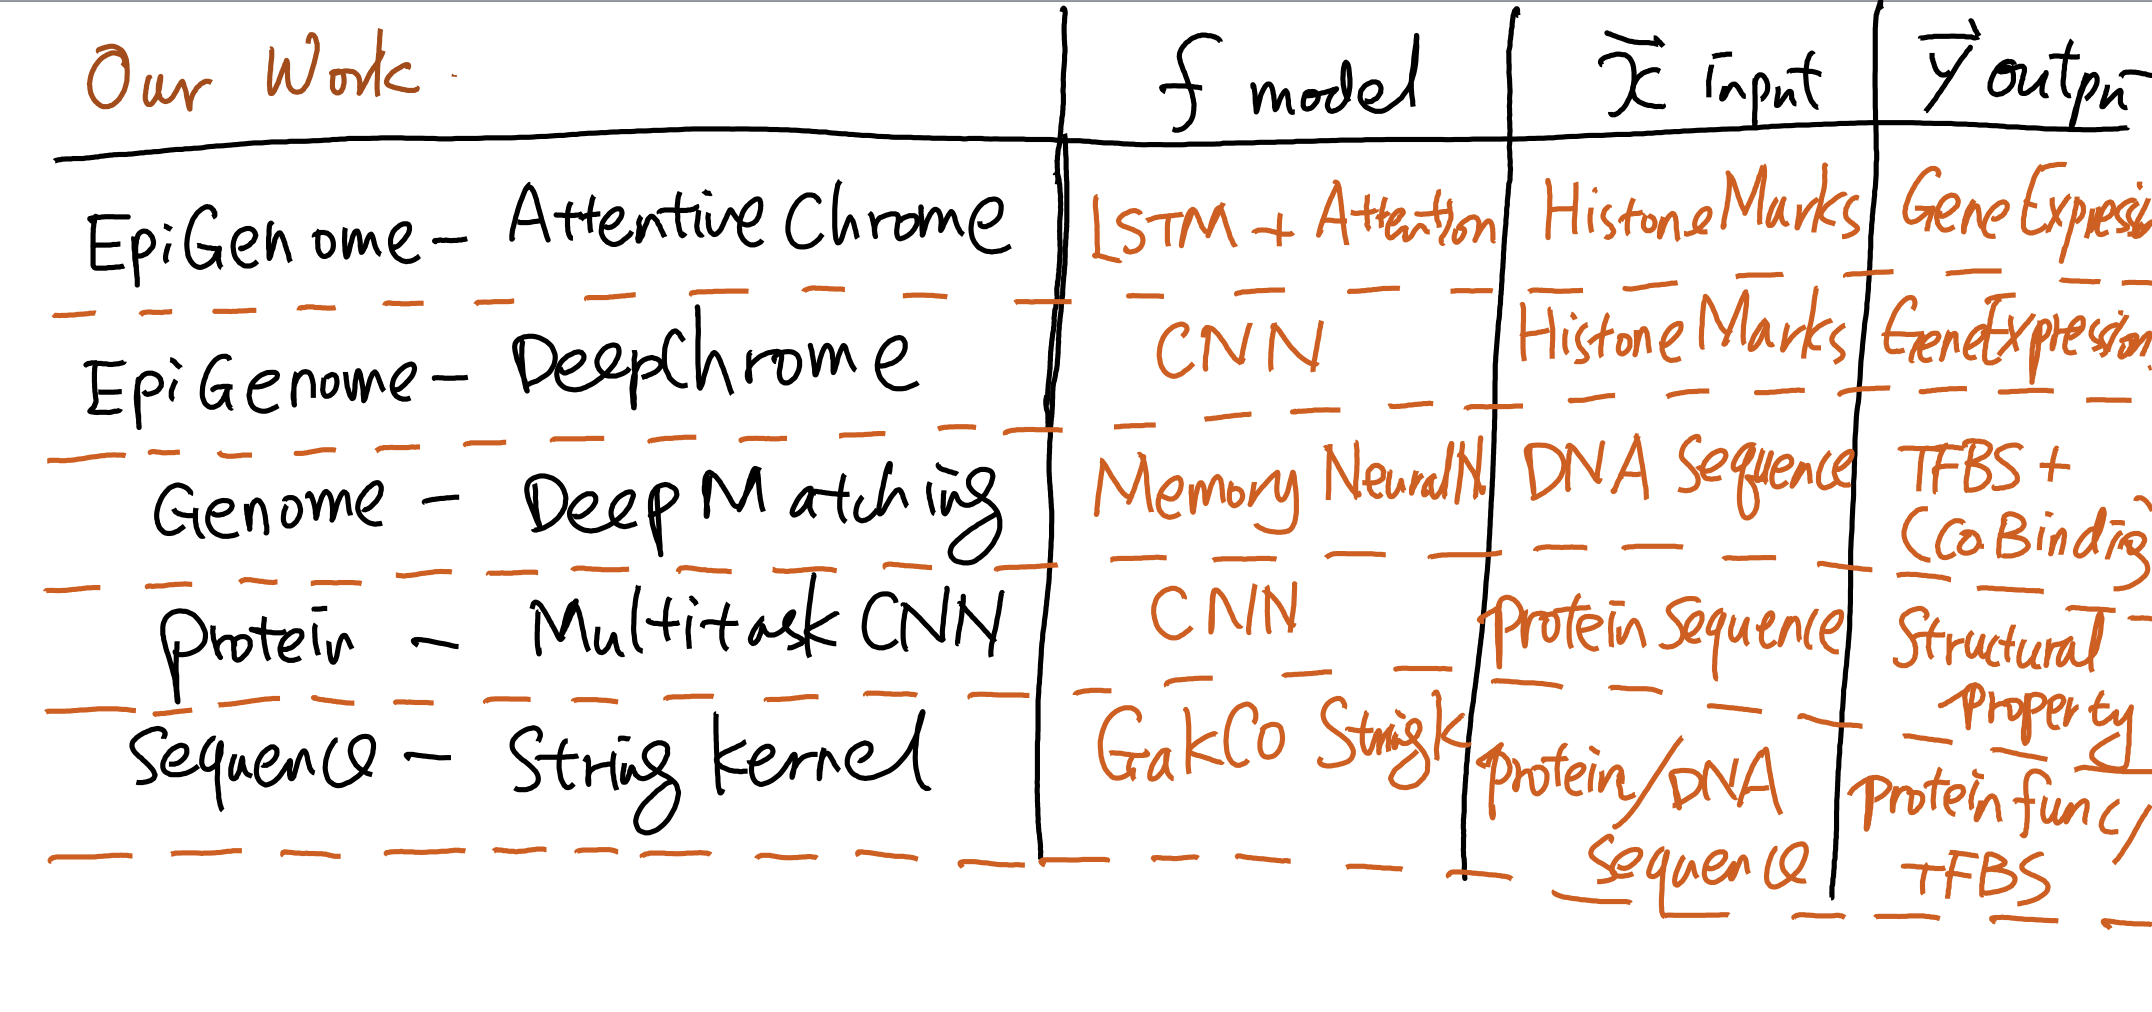 Our Work. f model x⃗ input y⃗ outpu
EpiGenome – Attentive Chrome LSTM + Attention Histone Marks Gene Express
EpiGenome – DeepChrome CNN Histone Marks GeneExpression
Genome – Deep Matching Memory NeuralN DNA Sequence TFBS +
CoBinding
protein – Multitask CNN CNN protein Sequence Structural
property
Sequence – String kernel GakCo StringK protein/DNA protein func/
Sequence TFBS